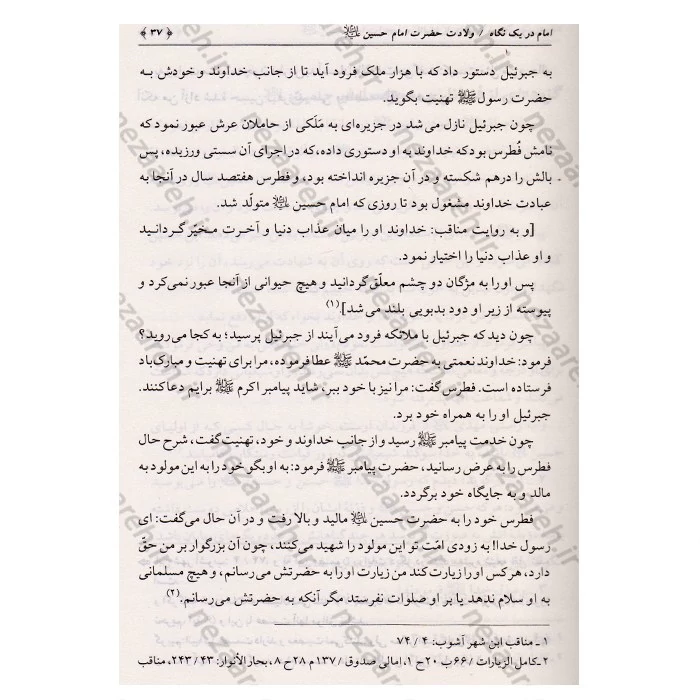 امام در یک نگاه / ولادت حضرت امام حسین ﷺ ﴿ ۳۷ ﴾
به جبرئیل دستور داد که با هزار ملک فرود آید تا از جانب خداوند و خودش به
حضرت رسول ﷺ تهنیت بگوید.
چون جبرئیل نازل می‌شد در جزیره‌ای به مَلَکی از حاملان عرش عبور نمود که
نامش فُطرس بود که خداوند به او دستوری داده، که در اجرای آن سستی ورزیده، پس
بالش را درهم شکسته و در آن جزیره انداخته بود، و فطرس هفتصد سال در آنجا به
عبادت خداوند مشغول بود تا روزی که امام حسین علیه السلام متولّد شد.
[و به روایت مناقب: خداوند او را میان عذاب دنیا و آخرت مخیّر گردانید
و او عذاب دنیا را اختیار نمود.
پس او را به مژگان دو چشم معلّق گردانید و هیچ حیوانی از آنجا عبور نمی‌کرد و
پیوسته از زیر او دود بدبویی بلند می‌شد](۱)
چون دید که جبرئیل با ملائکه فرود می‌آیند از جبرئیل پرسید؛ به کجا می‌روید؟
فرمود: خداوند نعمتی به حضرت محمّد ﷺ عطا فرموده، مرا برای تهنیت و مبارک‌باد
فرستاده است. فطرس گفت: مرا نیز با خود ببر، شاید پیامبر اکرم ﷺ برایم دعا کنند.
جبرئیل او را به همراه خود برد.
چون خدمت پیامبر ﷺ رسید و از جانب خداوند و خود، تهنیت گفت، شرح حال
فطرس را به عرض رسانید، حضرت پیامبر ﷺ فرمود: به او بگو خود را به این مولود به
مالد و به جایگاه خود برگردد.
فطرس خود را به حضرت حسین علیه السلام مالید و بالا رفت و در آن حال می‌گفت: ای
رسول خدا! به زودی امّت تو این مولود را شهید می‌کنند، چون آن بزرگوار بر من حقّ
دارد، هر کس او را زیارت کند من زیارت او را به حضرتش می‌رسانم، و هیچ مسلمانی
به او سلام ندهد یا بر او صلوات نفرستد مگر آنکه به حضرتش می‌رسانم.(۲)
۱ ـ مناقب ابن شهر آشوب: ۴ / ۷۴
۲ ـ کامل الزیارات / ۶۶ ب ۲۰ ح ۱، امالی صدوق / ۱۳۷ م ۲۸ ح ۸، بحار الأنوار: ۴۳ / ۲۴۳، مناقب
nezaareh.ir